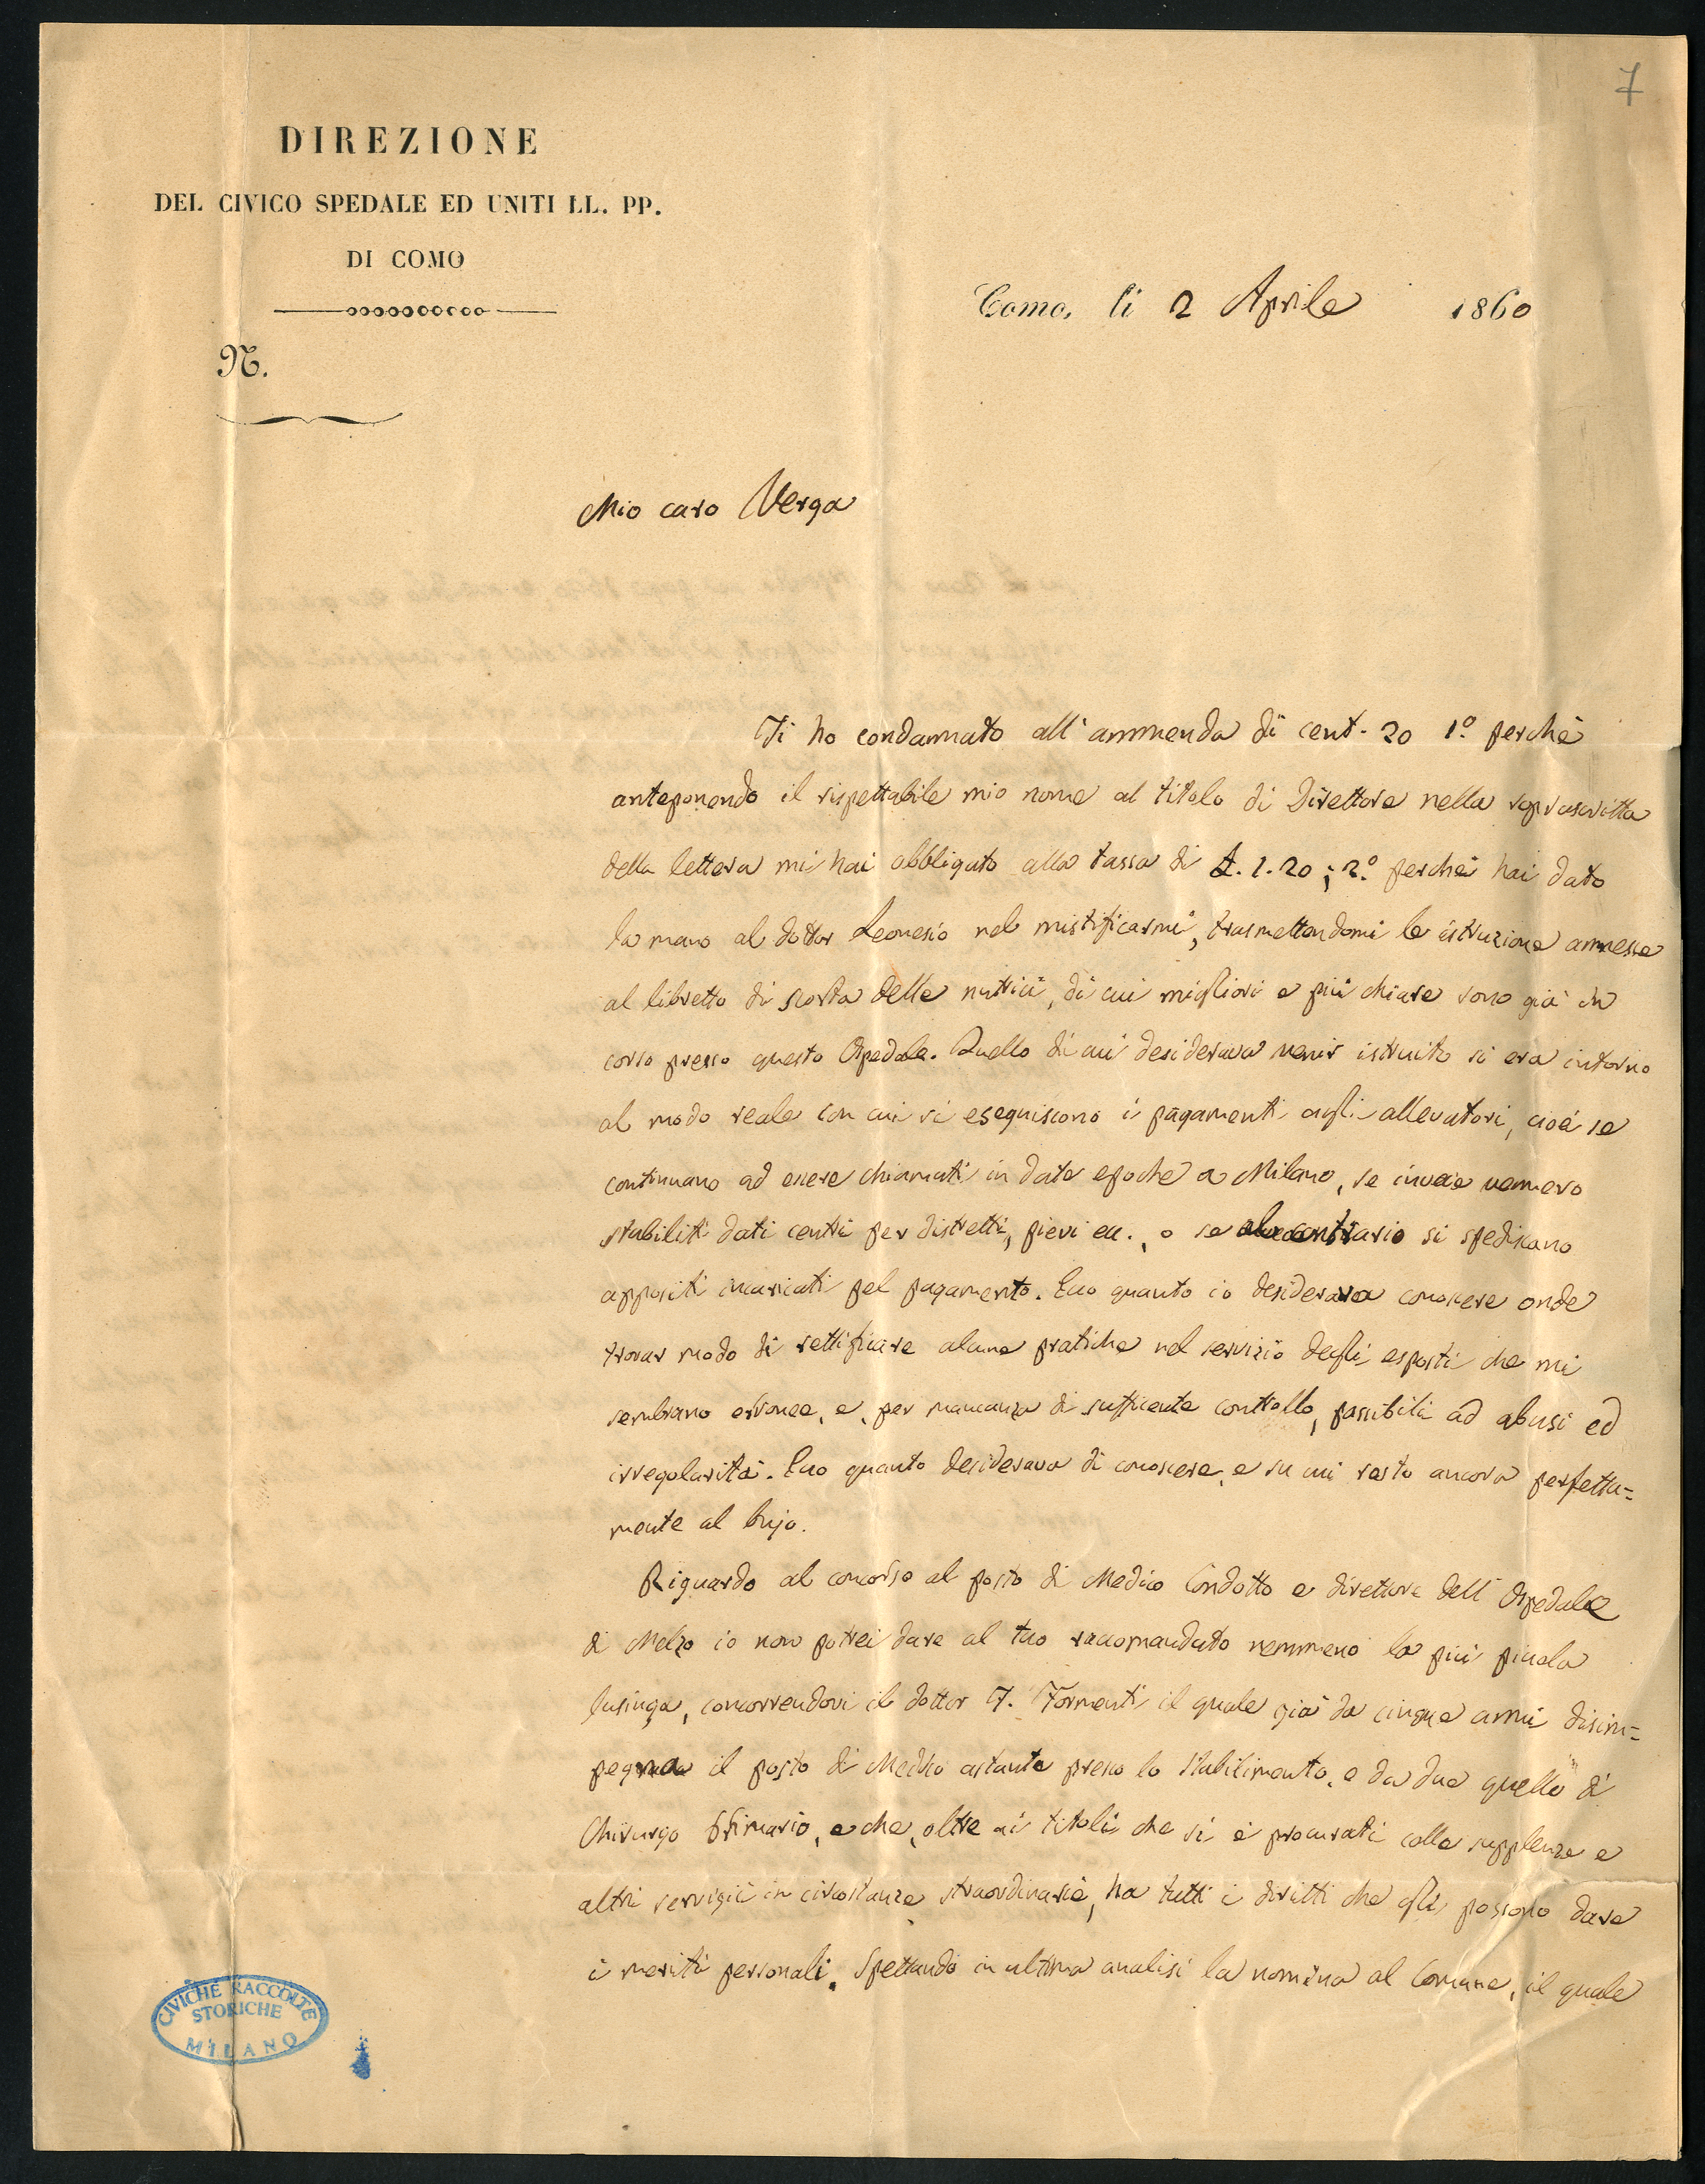 7
DIREZIONE
DEL CIVICO SPEDALE ED UNITI LL. PP.
DI COMO
Como, li 2 Aprile 1860
N.
Mio caro Verga
Ti ho condannato all'ammenda di cent. 20 1.° perchè
anteponendo il rispettabile mio nome al titolo di Direttore nella soprascritta
della lettera mi hai obbligato alla tassa di £. 1.20; 2.° perchè hai dato
la mano al dottor Leonesio nel mistificarmi, trasmettendomi le istruzione annesse
al libretto di scorta delle nutrici, di cui migliori e più chiare sono già in
corso presso questo Ospedale. Quello di cui desiderava venir istruito si era intorno
al modo reale con cui si eseguiscono i pagamenti agli allevatori, cioè se
continuano ad essere chiamati in date epoche a Milano, se invece vennero
stabiliti dati centri per distretti, pievi ecc., o se al contrario si spediscano
appositi incaricati pel pagamento. Ecco quanto io desiderava conoscere onde
trovar modo di rettificare alcune pratiche nel servizio degli esposti che mi
sembrano erronee, e, per mancanza di sufficente controllo, passibili ad abusi ed
irregolarità. Ecco quanto desiderava di conoscere, e su cui resto ancora perfetta=
mente al bujo.
Riguardo al concorso al posto di Medico Condotto e direttore dell'Ospedale
di Melzo io non potrei dare al tuo raccomandato nemmeno la più piccola
lusinga, concorrendovi il dottor F. Formenti il quale già da cinque anni disim=
pegna il posto di Medico astante presso lo Stabilimento, e da due quello di
Chirurgo Primario, e che, oltre ai titoli che si è procurati colle supplenze e
altri servigii in circostanze straordinarie, ha tutti i diritti che gli possono dare
i meriti personali. Spettando in ultima analisi la nomina al Comune, il quale
CIVICHE RACCOLTE
STORICHE
MILANO